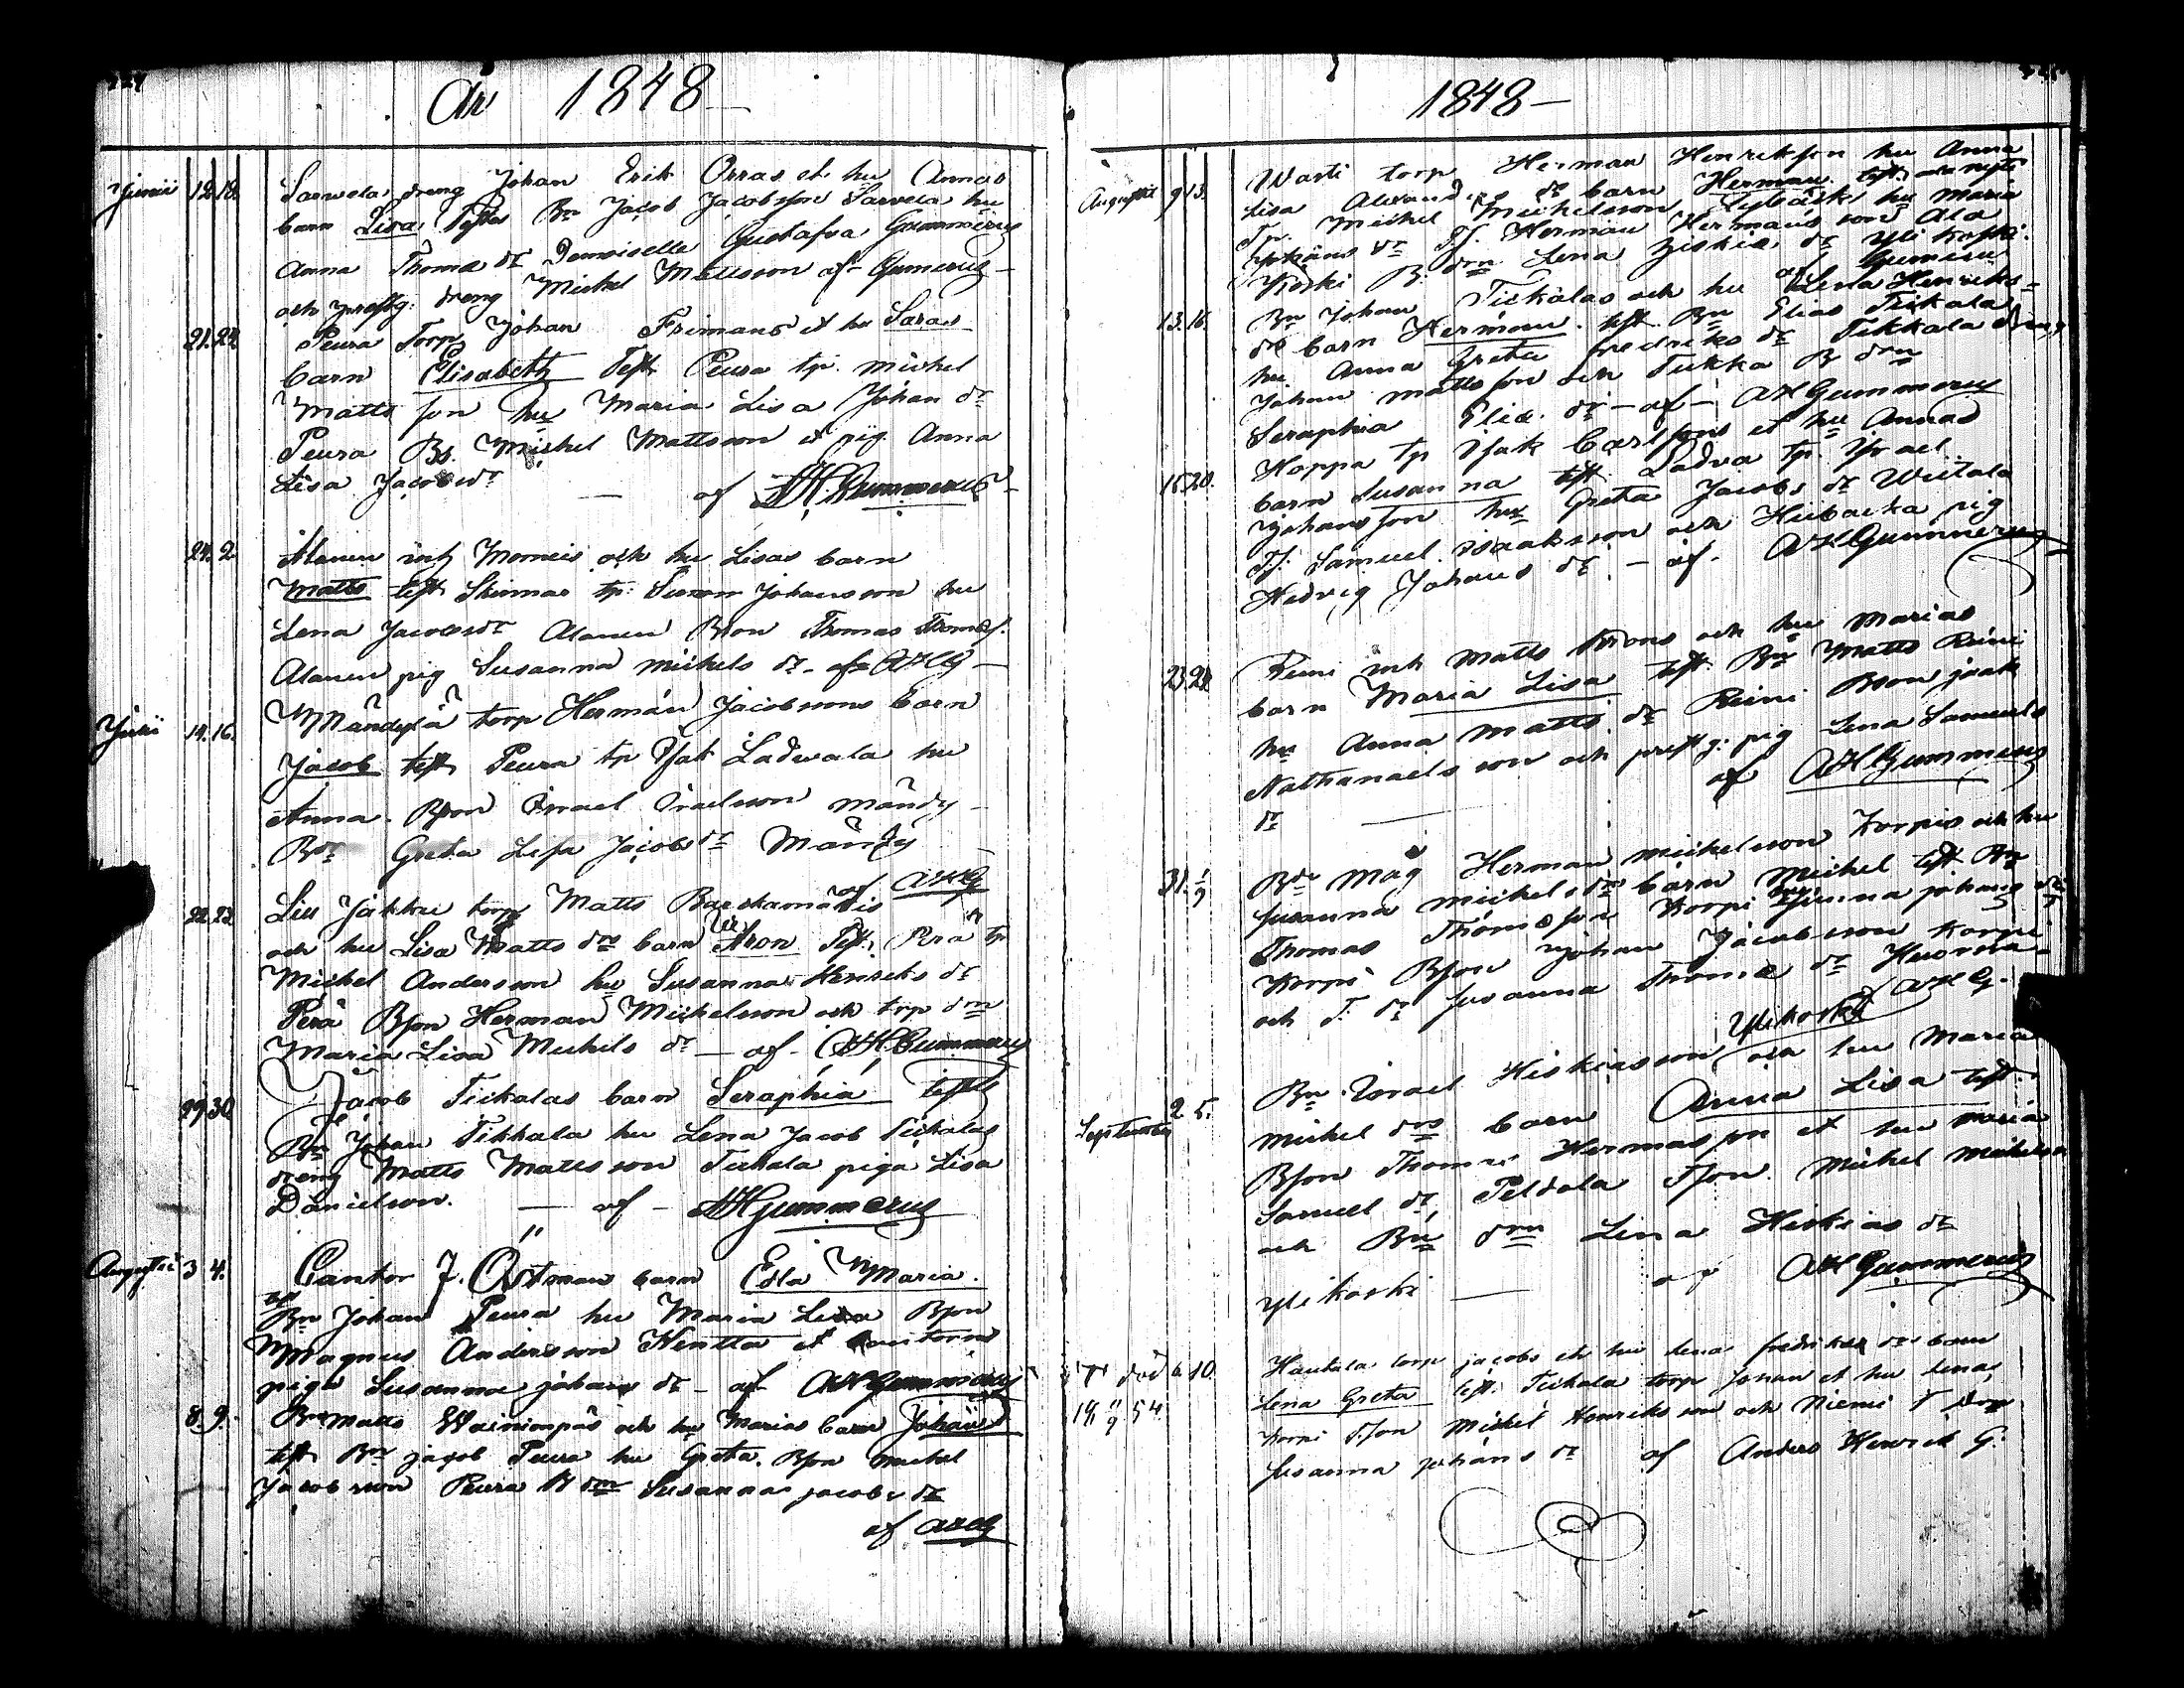 År 1848
Junii 12. 18. Sarvela dreng Johan Erik Orras et hu Annas
barn Lisa Test Bn Jacob Jacobsson Sarvela hu
Anna Thomæ dr Demoiselle Gustafva Gummerus
och prestg. dreng Michel Mattsson af Gumerus
21. 24. Peura Torp Johan Frimans et hu Saras
barn Elisabeth Test Peura tp. Michel
Matts son hu Maria Lisa Johan dr
Peura Bs. Michel Mattsson et pig. Anna
Lisa Jacobs dr — af AHGummerus
24. 2 Alanen inh Momeis och hu Lisas barn
Matts test tp: Simon Johansson hu
Lena Jacobs dr Alanen Bson Thomas Thomæs.
Alanen pig Susanna Michels dr - af AHG —
Julii 14. 16. Mändylä torp Herman Jacobssons barn
Jacob test Peura tp Isak Ladvala hu
Anna. Bson Israel Israelsson Mändy-
Bdr Greta Lisa Jacobs dr Mändy
af AHG
22. 23. Liu Jakku torp Matts
och hu Lisa Matts drs barn Aron Test. Perä tp
Michel Andersson hu Susanna Henriks dr
Perä Bson Herman Michelsson och torp drn
Maria Lisa Michels dr — af - AHGummerus
29. 30. Jacob Tickalas barn Seraphia test
Bn Johan Tikkala hu Lena Jacob Tickalas
dreng Matts Mattsson Tickala piga Lisa
Danielson. — af — AHGummerus
Augusti 3 4. Cantor J. Östman barn Edla Maria.
test
Bn Johan Peura hu Maria Lisa Bson
Magnus Andersson Hentta et Cantorns
piga Susanna Johans dr — af AHGummerus
8. 9. Bn Matts Wainionpäs och hu Marias barn Johan
test Bn Jacob Peura hu Greta. Bson Michel
Jacobsson Peura B drn Susanna Jacobs dr
af AHG
1848 —
Augusti 9 13. Warti torp Herman Henriksson hu Anna
Lisa Alexanders dr barn Herman test.
Tp. Michel Michelsson hu Maria
Johans dr Ts. Herman Hermans son Ala
Koski B. drn Lena Hiskiæ dr Yli Koski.
af Gumerus
13. 16. Bn Johan Tickalas och hu Lena Henriks-
drs barn Herman. test. Bn Elias Tickala
hu Anna Greta Fredriks dr Tikkala dreng
Johan Mattsson och Tukka B drn
Seraphia Eliæ dr — af — AHGummerus
16 20. Hoppa tp Isak Carlssons et hu Annas
barn Susanna test Ladva tp. Israel
Johansson hu Greta Jacobs dr Wiitala
Ts. Samuel Isaaksson och pig
Hedvig Johans dr — af - AHGummerus
23. 24. Reini inh Matts och hu Marias
barn Maria Lisa test. Bn Matts Reini
hu Anna Matts dr Reini Bson Isak
Nathanaels son och prestg: pig Lena Samuels
dr — af AHGummerus
31. 1/9 Bde Måg Herman Michelsson Korpis och hu
Susanna Michels drs barn Michel test Bn
Thomas Thomæson Korpi hu Johans dr
Korpi Bson Johan Jacobsson Korpi
och T. dr Susanna Thomæ dr
AHG.
Ylikoski
September 2 5. Bn Israel Hiskiasson och hu Maria
Michel drs barn Anna Lisa test.
Bson Thomas Hermansson et hu Maria
Samuel dr Peldola Tson Michel Michelsson
och Bn drn Lena Hiskias dr
Ylikoski — af AHGummerus
död 6 10. Hautala torp Jacobs och hu Lena Fredrikas drs barn
19 11/9 54 Lena Greta test. Tickala torp Johan et hu Lena,
Korpi Tson Michel Henriksson och Niemi T drn
Susanna Johans dr af Anders Henrik G.